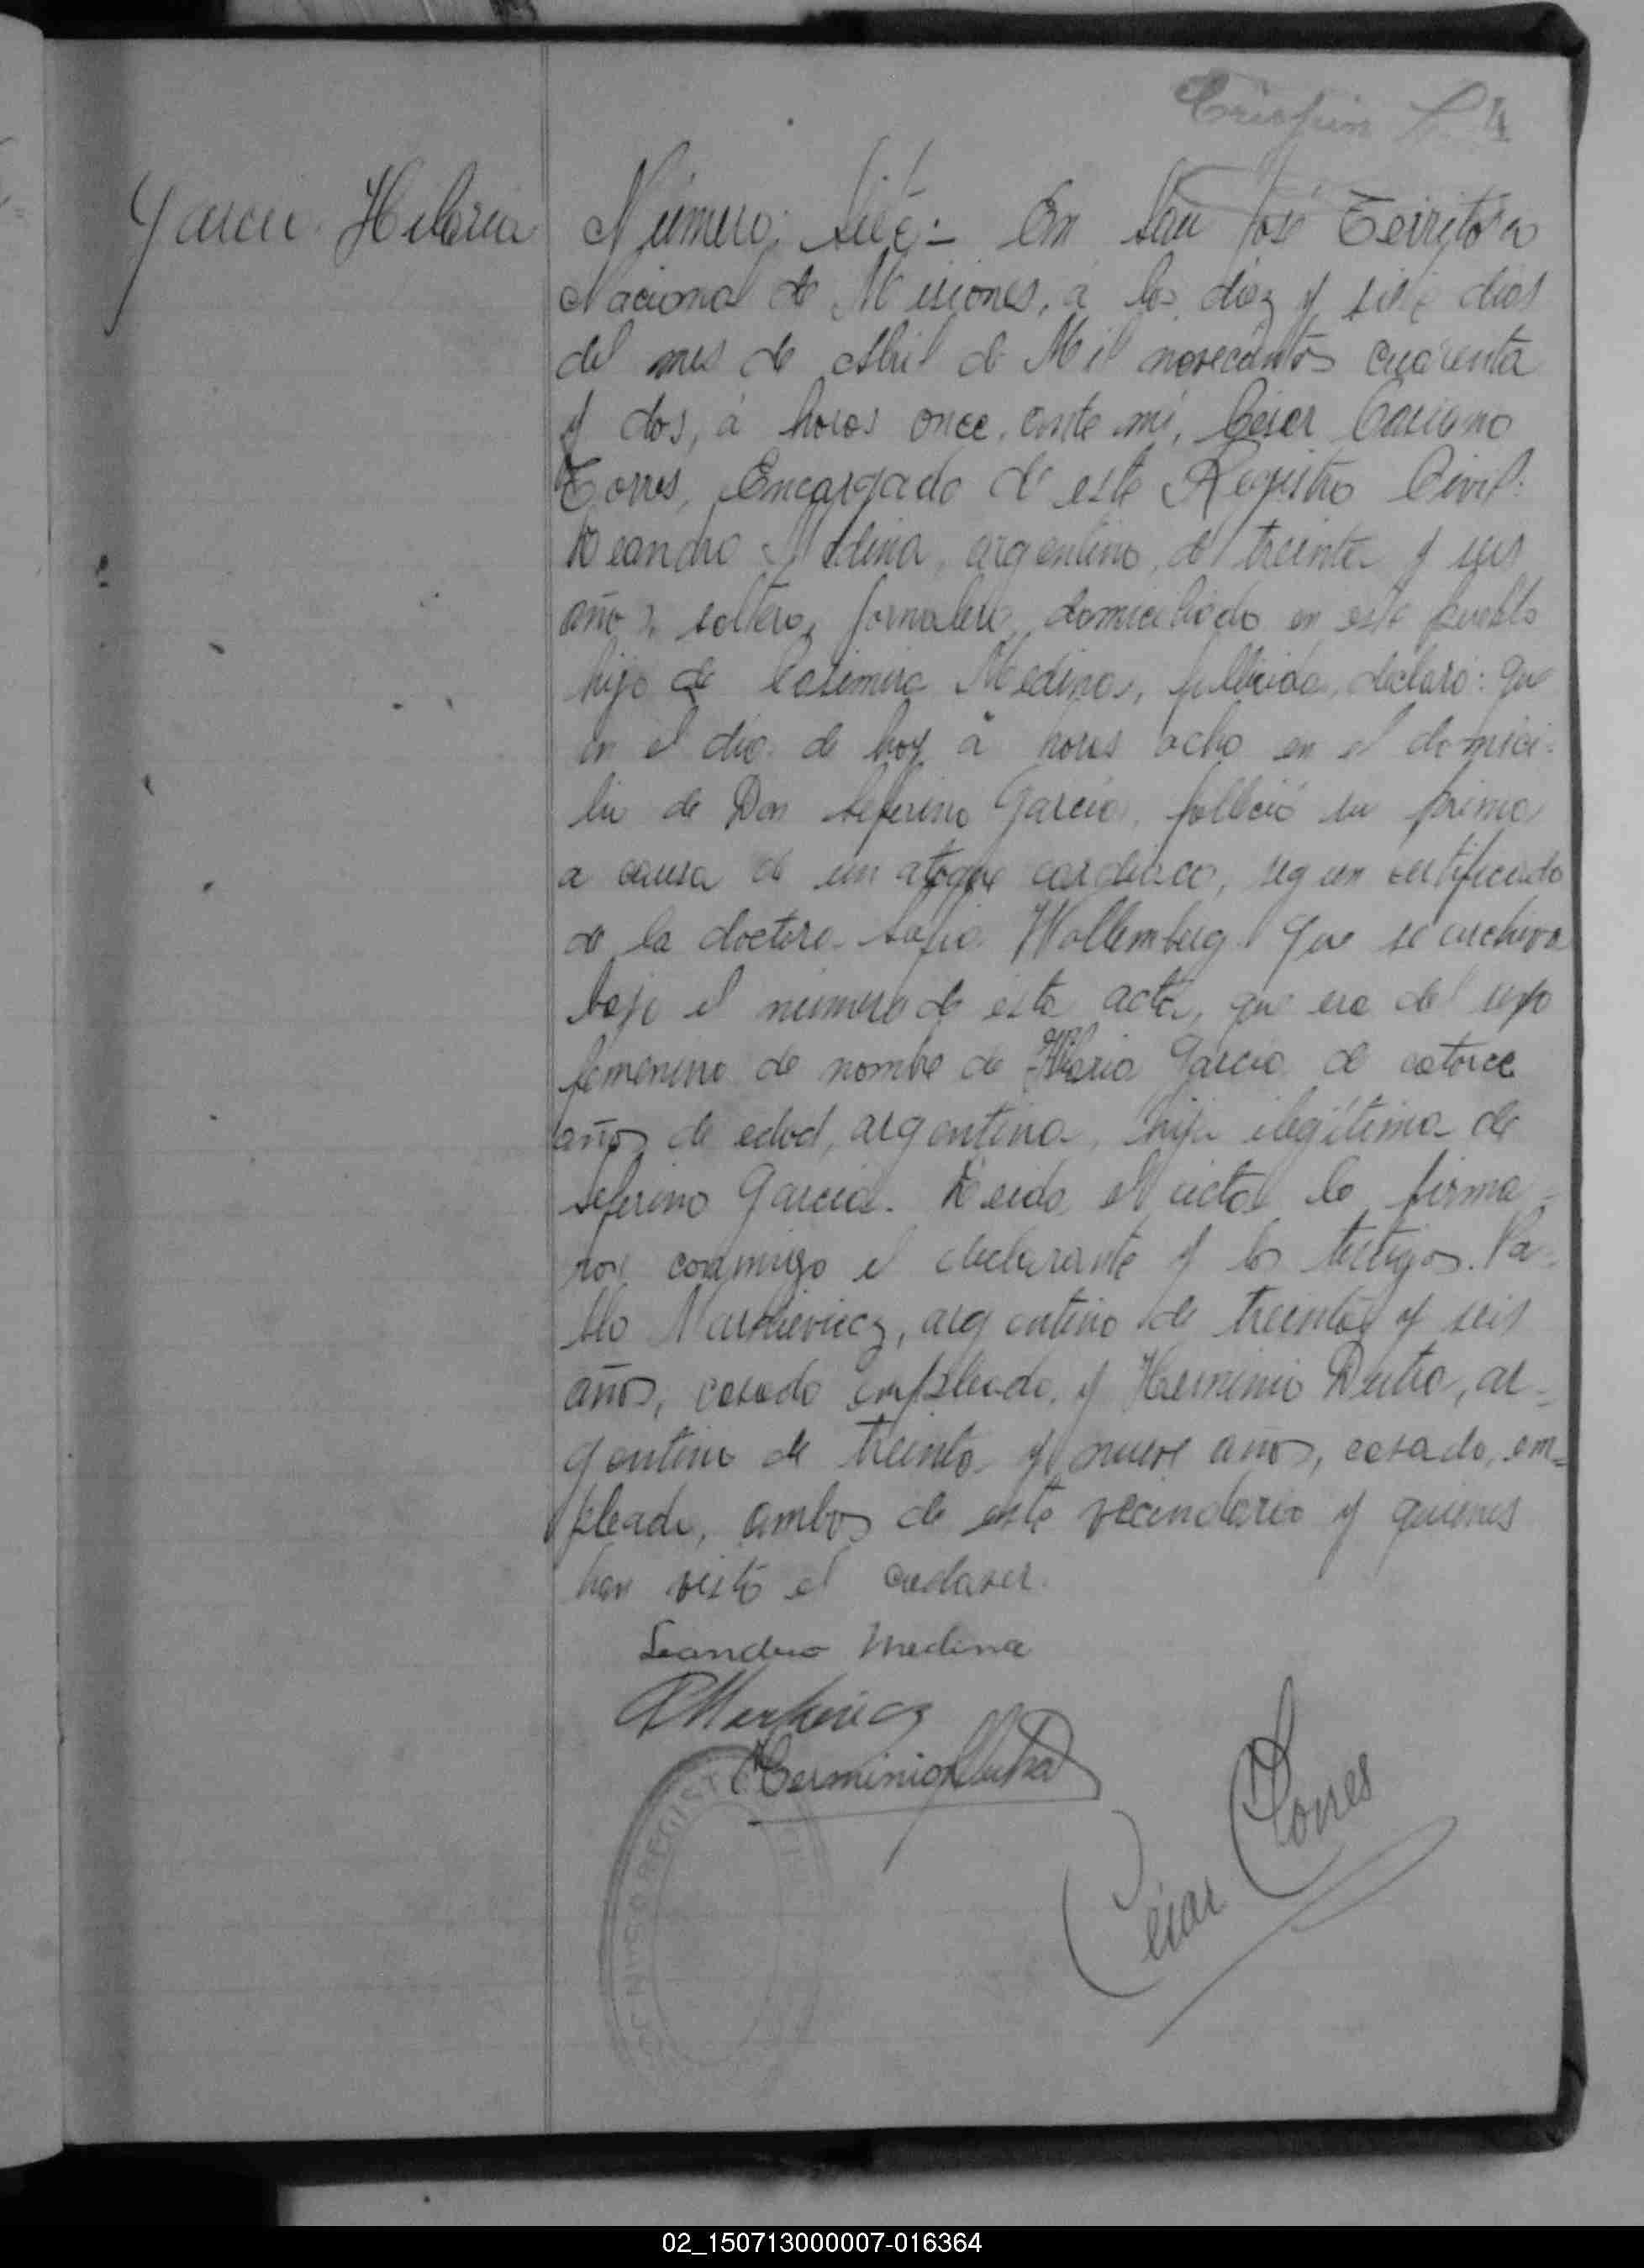 Crispin L. 4
Garcia Hilaria
Número: Siete:- En San José Territorio
Nacional de Misiones, a los diez y siete dias
del mes de Abril de Mil novecientos cuarenta
y dos, á horas once, ante mí, César Casiano
Torres, Encargado de este Registro Civil:
Leandro Medina, argentino, de treinta y seis
años, soltero, jornalero, domiciliado en este pueblo
hijo de Casimira Medina, fallecida, declaró: Que
en el dia de hoy á horas ocho en el domici-
lio de Don Seferino Garcia, falleció su prima
a causa de un ataque cardiaco, segun certificado
de la doctora Sofia Wollemberg que se archiva
bajo el número de esta acta, que era del sexo
femenino de nombre de Hilaria Garcia de catorce
años de edad, argentina, hija ilegítima de
Seferino Garcia. Leida el acta la firma-
ron conmigo el declarante y los testigos. Pa-
blo Markievicz, argentino de treinta y seis
años, casado empleado, y Herminio Dutra, ar-
gentino de treinta y nueve años, casado, em-
pleado, ambos de este vecindario y quienes
han visto el cadaver.
Leandro Medina
PMarkievicz
Herminio Dutra
César CTorres
REGIST
SAN JO
02_150713000007-016364